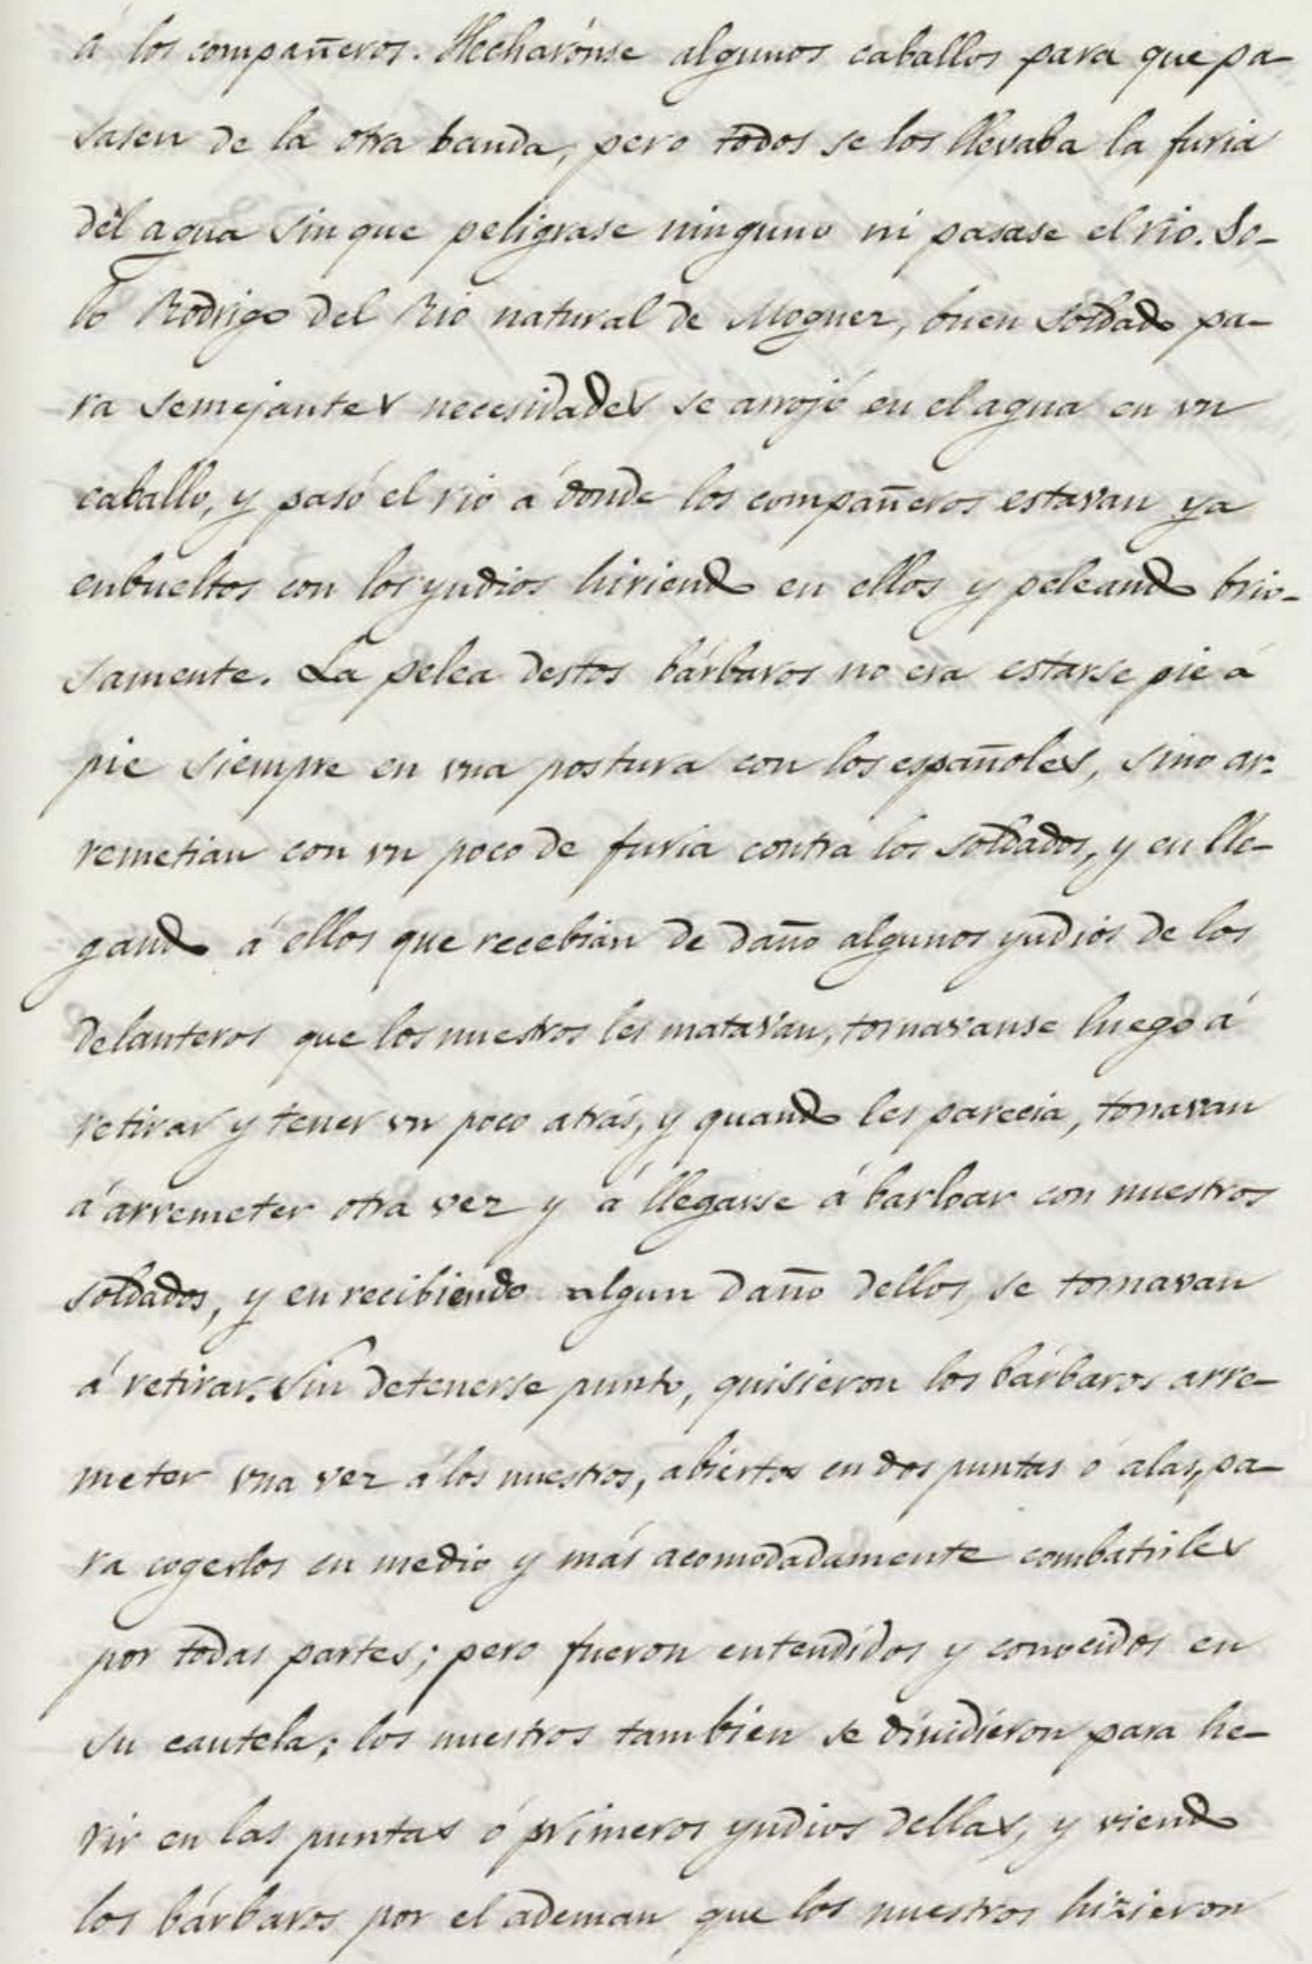 á los compañeros. Hecharónse algunos caballos para que pa-
sasen de la otra banda, pero todos se los llevaba la furia
del agua sin que peligrase ninguno ni pasase el rio. So-
lo Rodrigo del Rio natural de Moguer, buen soldado pa-
ra semejantes necesidades se arrojó en el agua en vn
caballo, y pasó el rio á donde los compañeros estavan ya
enbueltos con los yndios hiriendo en ellos y peleando brio-
samente. La pelea destos bárbaros no era estarse pie á
pie siempre en vna postura con los españoles, sino ar-
remetian con vn poco de furia contra los soldados, y en lle-
gando á ellos que recebian de daño algunos yndios de los
delanteros que los nuestros les matavan, tornavanse luego á
retirar y tener vn poco atrás, y quando les parecia, tornavan
á arremeter otra vez y á llegarse á barloar con nuestros
soldados, y en recibiendo algun daño dellos, se tornavan
á retirar. Sin detenerse punto, quisieron los bárbaros arre-
meter vna vez á los nuestros, abiertos en dos puntas ó alas, pa-
ra cogerlos en medio y más acomodadamente combatirles
por todas partes; pero fueron entendidos y conocidos en
su cautela; los nuestros tambien se diuidieron para he-
rir en las puntas ó primeros yndios dellas, y viendo
los bárbaros por el ademan que los nuestros hizieron